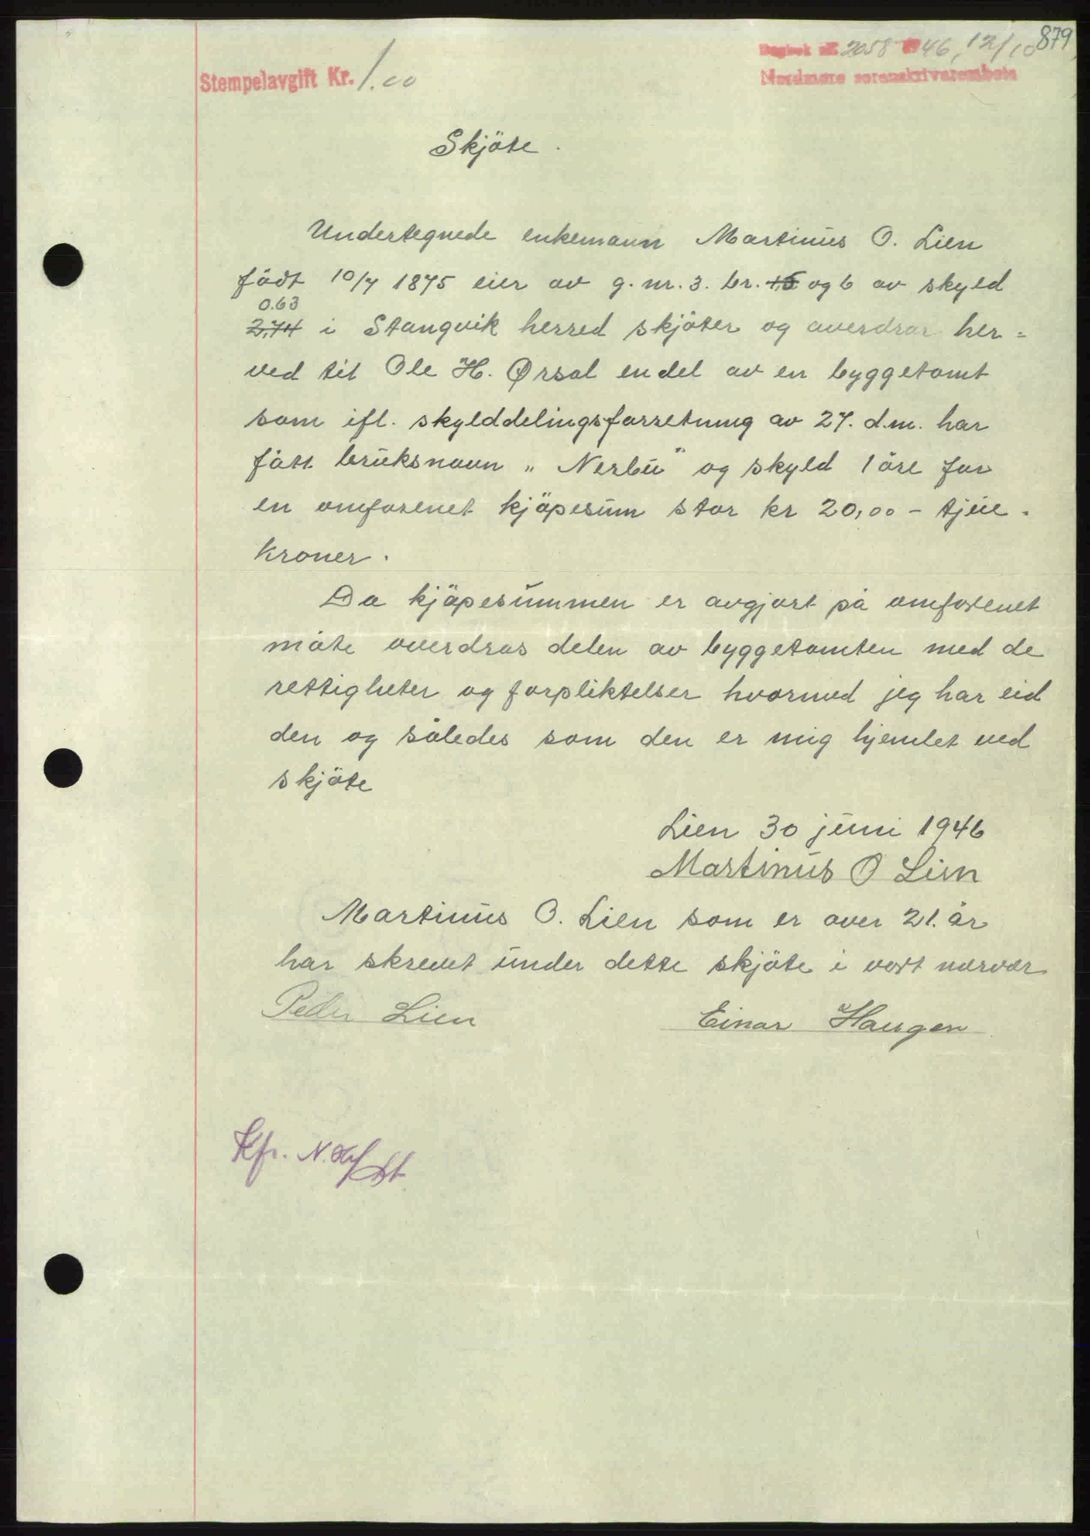 879
Dagbok nr. 2058 1946, 12/10
Stempelavgift Kr. 1.00
Nordmøre sorenskriverembete
Skjöte.
Undertegnede enkemann Martinus O. Lien
födt 10/7 1875 eier av g.nr. 3. br. 15 og 6 av skyld
0.63
2,74 i Stangvik herred skjöter og averdrar her=
ved til Ole H. Ørsal endel av en byggetomt
som ifl. skylddelingsforretning av 27. d.m. har
fått bruksnavn „Nerbu" og skyld 1 öre for
en omforenet kjöpesum stor kr 20,00 – tjue-
kroner.
Da kjöpesummen er avgjort på omforenet
måte overdras delen av byggetomten med de
rettigheter og forpliktelser hvormed jeg har eid
den og således som den er mig hjemlet ved
skjöte
Lien 30 juni 1946
Martinus O Lien
Martinus O. Lien som er over 21. år
har skrevet under dette skjöte i vort nærvær
Peder Lien Einar Haugen
Kfr. N.